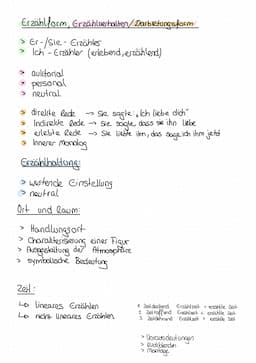 Erzählform, Erzählverhalten/Darbietungsform
> Er-/Sie-Erzähler
> Ich-Erzähler (erlebend, erzählend)
> auktorial
> personal
> neutral
> direkte Rede → Sie sagte: „Ich liebe dich"
> Indirekte Rede → Sie sagte, dass sie ihn liebe
> erlebte Rede → Sie liebte ihn, das sage ich ihm jetzt
> Innerer Monolog
Erzählhaltung:
> wertende Einstellung
> neutral
Ort und Raum:
> Handlungsort
> Charakterisierung einer Figur
> Ausgestaltung der Atmosphäre
> symbolische Bedeutung
Zeit:
↳ lineares Erzählen
↳ nicht lineares Erzählen
1 Zeitdeckend Erzählzeit = erzählte Zeit
2 Zeitraffend Erzählzeit < erzählte Zeit
3 Zeitdehnend Erzählzeit > erzählte Zeit
> Vorausdeutungen
> Rückblenden
> Montage